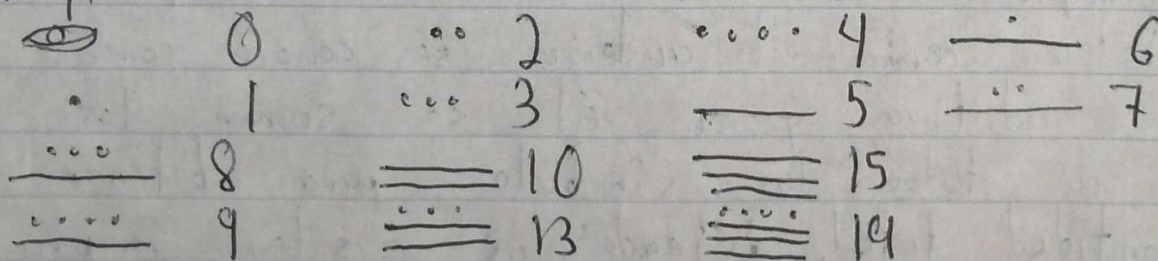 0 •• 2 •••• 4 •― 6
• 1 ••• 3 ― 5 ••― 7
•••― 8 ═ 10 ☰ 15
••••― 9 •••═ 13 ••••☰ 19